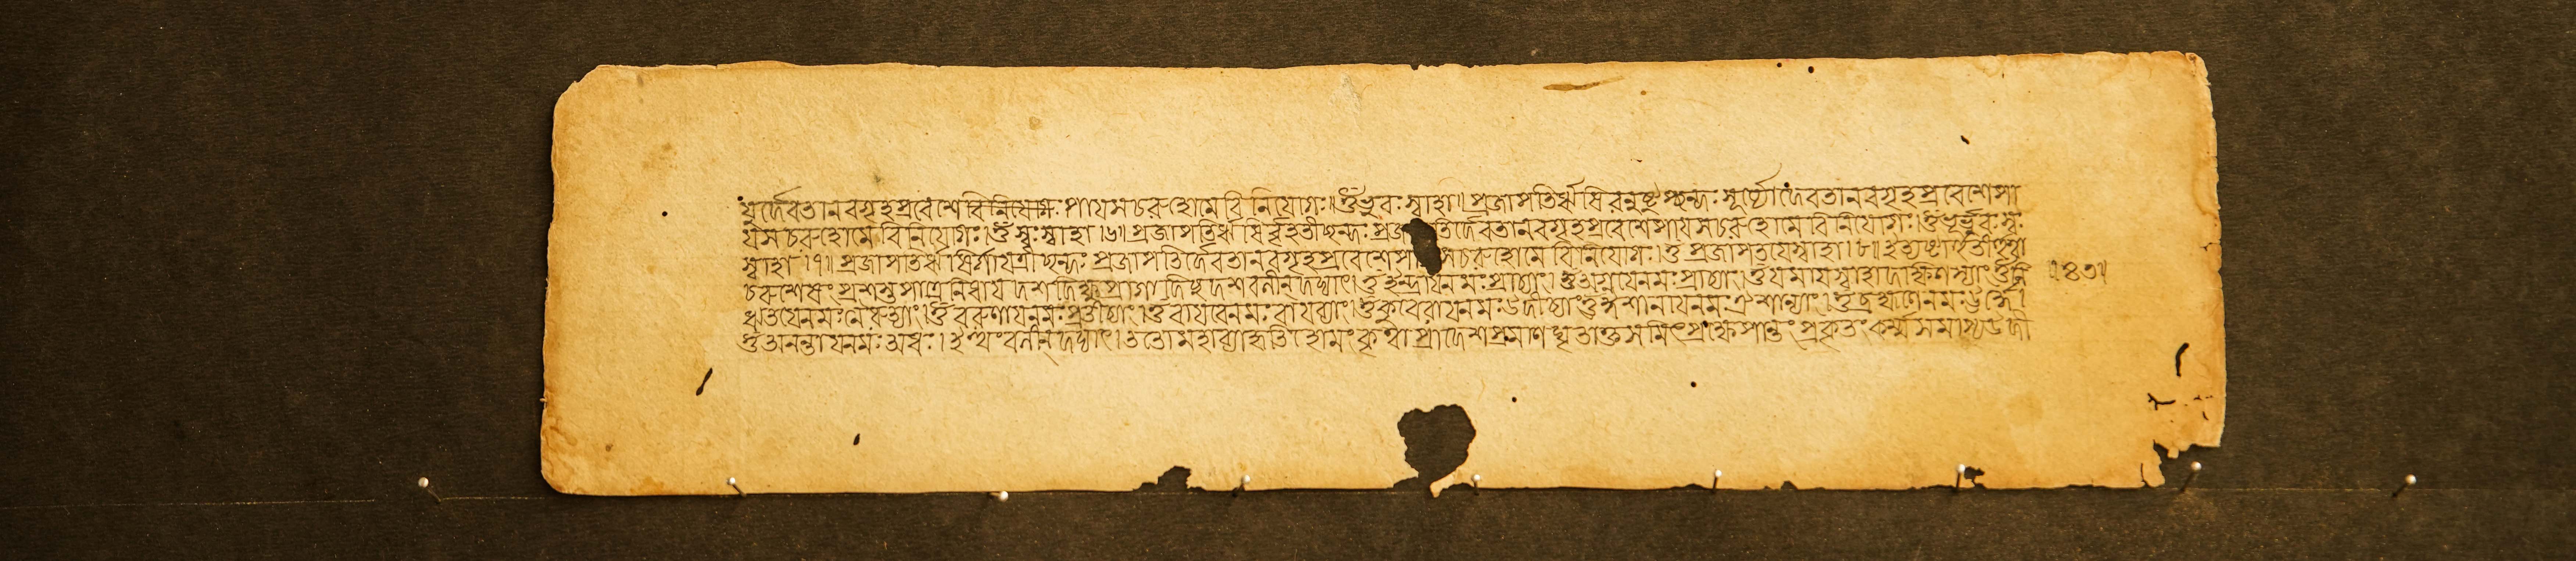 যুর্দ্দেবতানবগৃহপ্রবেশে বিনিয়োগঃ পায়সচরুহোমে বিনিয়োগঃ॥ ওঁ ভুবঃ স্বাহা॥ প্রজাপতিরৃষিরনুষ্টুপ্ছন্দঃ সূর্য্যোদেবতানবগৃহপ্রবেশেপা
য়সচরুহোমে বিনিয়োগঃ। ওঁ স্বঃ স্বাহা।৬॥ প্রজাপতিরৃষির্বৃহতীছন্দঃ প্রজা তির্দ্দেবতানবগৃহপ্রবেশেপায়সচরুহোমে বিনিয়োগঃ। ওঁ ভূর্ভুবঃ স্বঃ
স্বাহা।৭॥ প্রজাপতিরৃষির্গায়ত্রীছন্দঃ প্রজাপতির্দ্দেবতানবগৃহপ্রবেশেপা সচরুহোমে বিনিয়োগঃ। ওঁ প্রজাপতয়েস্বাহা।৮॥
চরুশেষং প্রশস্তপাত্রেনিধায় দশদিক্ষু দশবলীন্দদ্যাৎ। ওঁ ইন্দ্রায়নমঃ প্রাচ্যাং। ওঁ অগ্নয়েনমঃ প্রাচ্যাং। ওঁ যমায়স্বাহা ওঁ নি ॥৪৩॥
ঋতয়েনমঃ নৈঋত্যাং। ওঁ বরুণায়নমঃ প্রতীচ্যাং। ওঁ বায়বেনমঃ বায়ব্যাং। ওঁ কুবেরায়নমঃ উদীচ্যাং ওঁ ঈশানায়নমঃ ঐশান্যাং। ওঁ ব্রহ্মণেনমঃ ঊর্দ্ধে।
ওঁ অনন্তায়নমঃ অধঃ। ইত্থং বলীন্দদ্যাৎ। ততো মহাব্যাহৃতিহোমং কৃত্বা প্রাদেশপ্রমাণ ঘৃতাক্তসমিৎপ্রক্ষেপান্তং প্রকৃতং কর্ম্ম সমাপ্য উদী